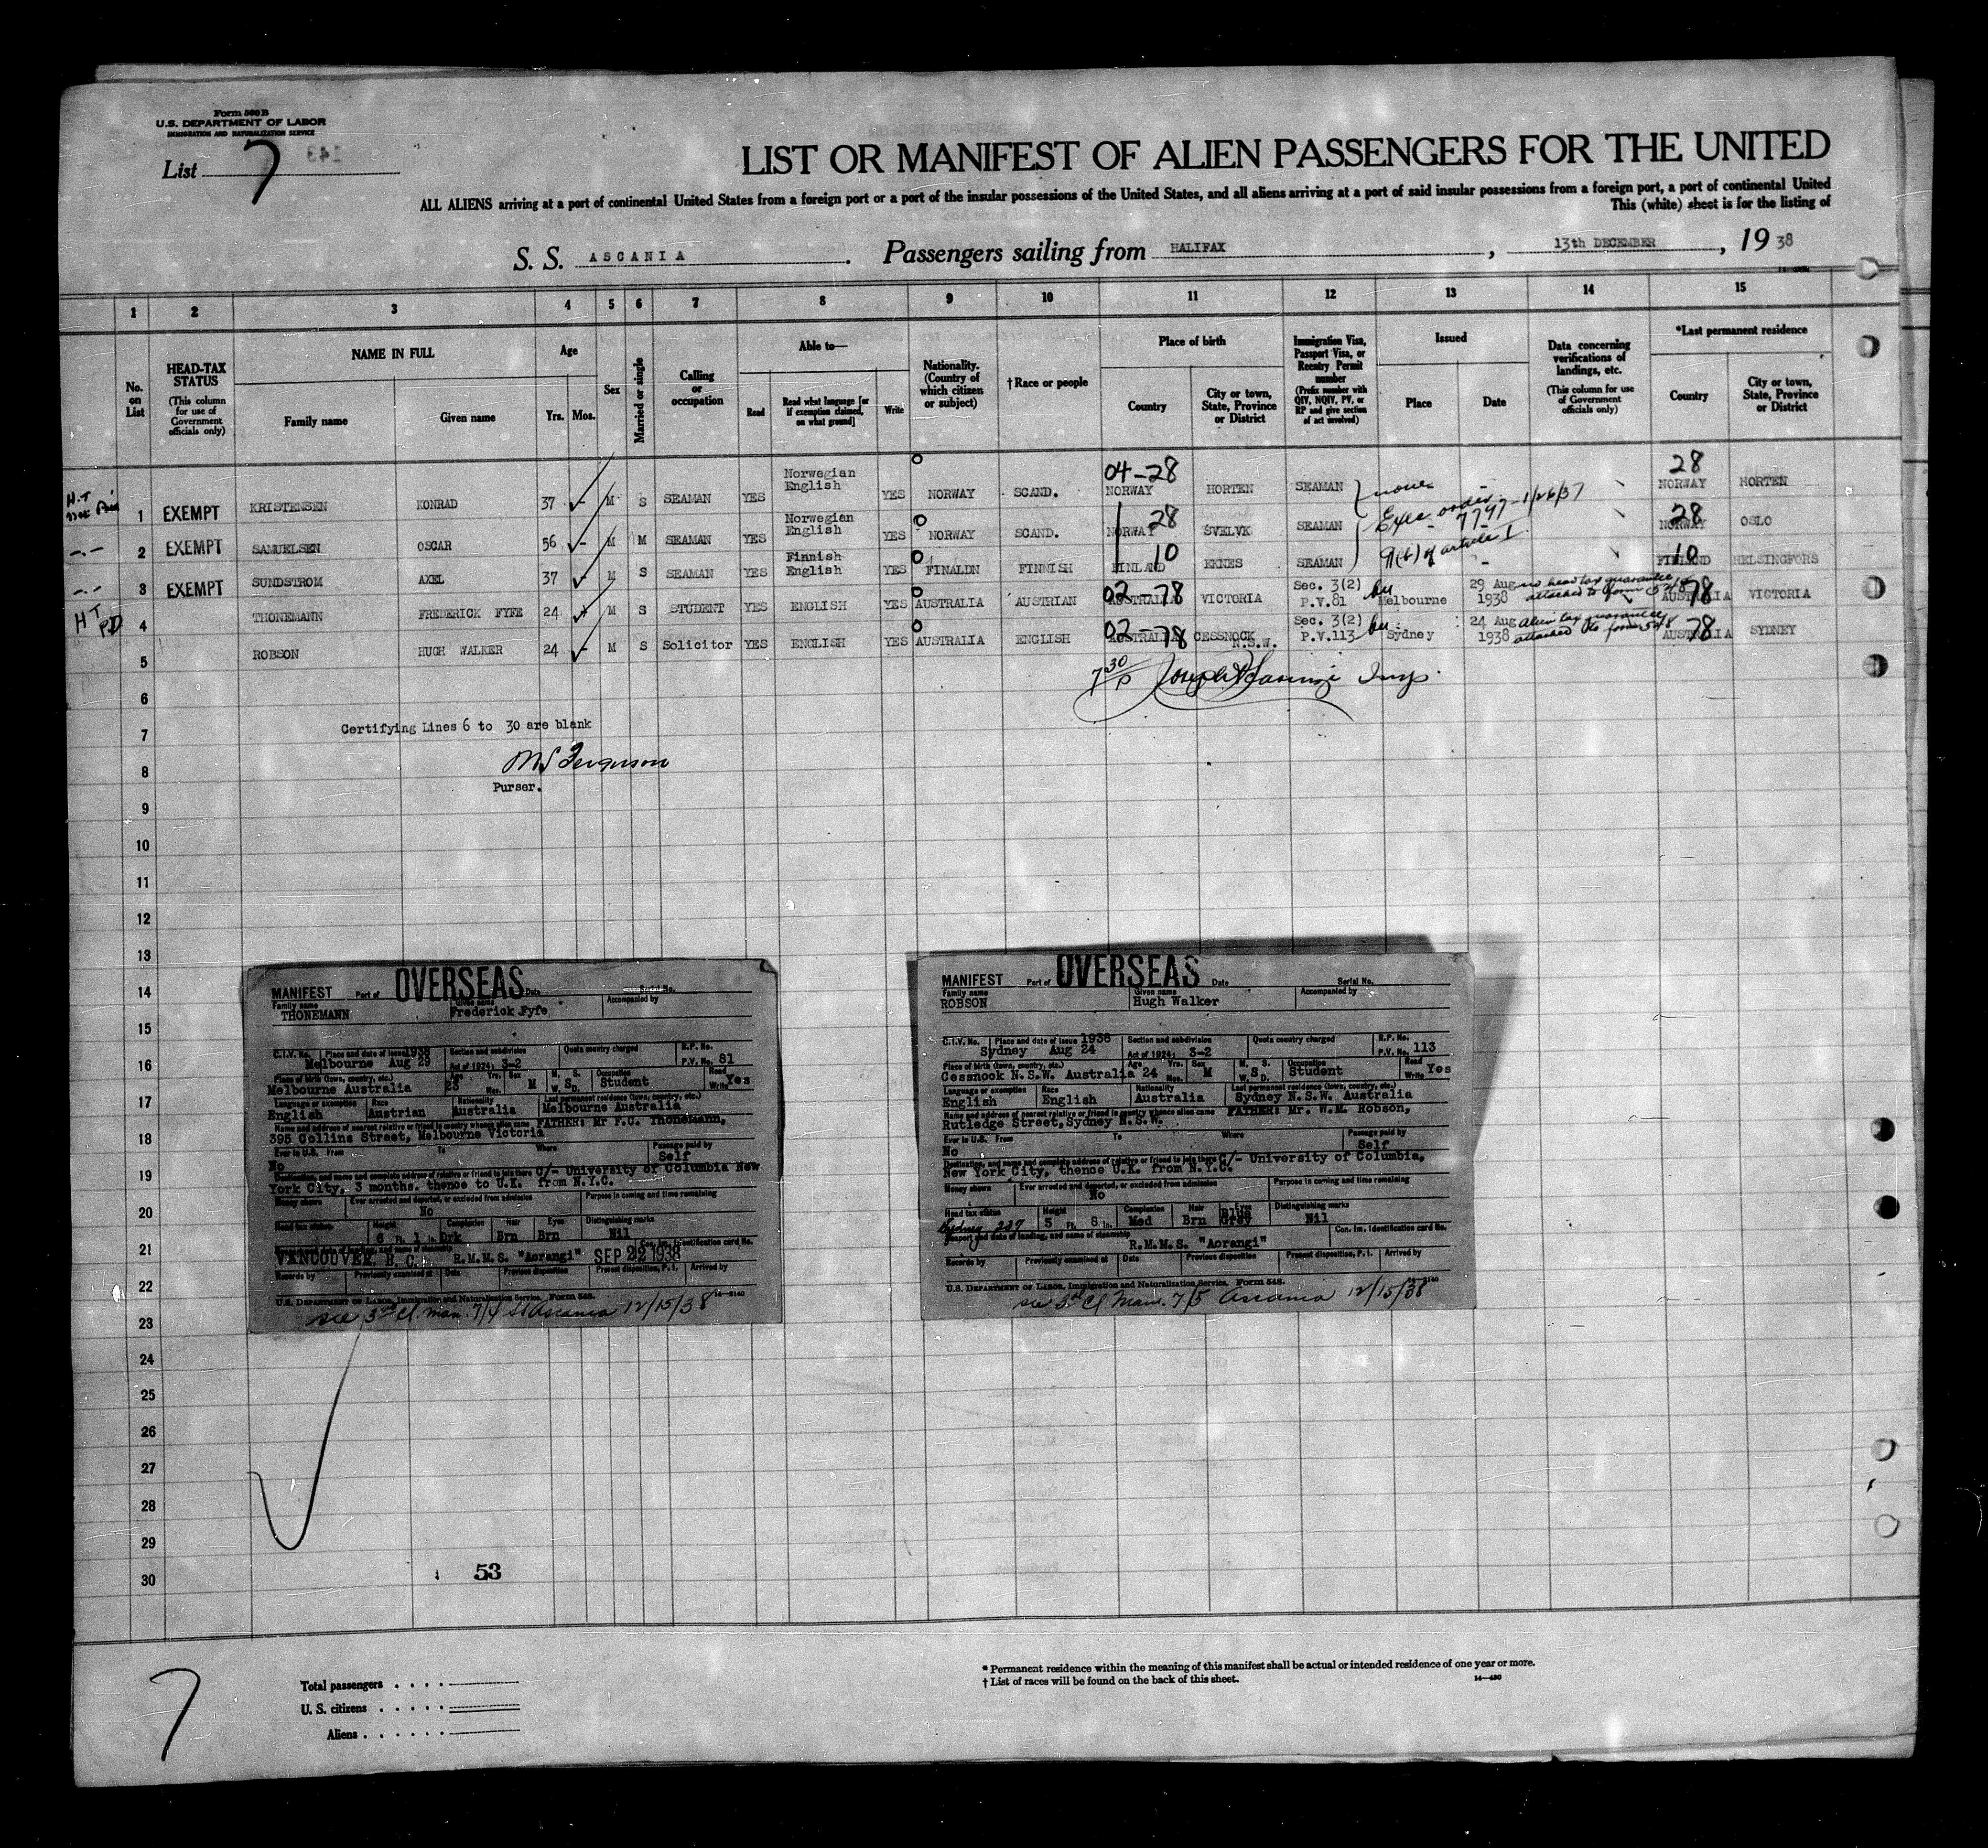 Form 500 B
U.S. DEPARTMENT OF LABOR
IMMIGRATION AND NATURALIZATION SERVICE
List 7
143
LIST OR MANIFEST OF ALIEN PASSENGERS FOR THE UNITED
ALL ALIENS arriving at a port of continental United States from a foreign port or a port of the insular possessions of the United States, and all aliens arriving at a port of said insular possessions from a foreign port, a port of continental United
This (white) sheet is for the listing of
S. S. ASCANIA. Passengers sailing from HALIFAX, 13th DECEMBER, 19 38
1 2 3 4 5 6 7 8 9 10 11 12 13 14 15
No. on List
HEAD-TAX STATUS (This column for use of Government officials only)
NAME IN FULL Family name Given name
Age Yrs. Mos.
Sex
Married or single
Calling or occupation
Able to— Read Read what language [or if exemption claimed, on what ground] Write
Nationality. (Country of which citizen or subject)
† Race or people
Place of birth Country City or town, State, Province or District
Immigration Visa, Passport Visa, or Reentry Permit number (Prefix number with QIV, NQIV, PV, or RP and give section of act involved)
Issued Place Date
Data concerning verifications of landings, etc. (This column for use of Government officials only)
*Last permanent residence Country City or town, State, Province or District
1 EXEMPT KRISTENSEN KONRAD 37 - M S SEAMAN YES Norwegian English YES NORWAY SCAND. 04-28 NORWAY HORTEN SEAMAN none 28 NORWAY HORTEN
2 EXEMPT SAMUELSEN OSCAR 56 - M M SEAMAN YES Norwegian English YES NORWAY SCAND. 28 NORWAY SVELVK SEAMAN Exec. order 7797-1/26/37 28 NORWAY OSLO
3 EXEMPT SUNDSTROM AXEL 37 - M S SEAMAN YES Finnish English YES FINALDN FINNISH 10 FINLAND EKNES SEAMAN 9(b) of article I - 10 FINLAND HELSINGFORS
HT PD 4 THONEMANN FREDERICK FYFE 24 M S STUDENT YES ENGLISH YES AUSTRALIA AUSTRIAN 02-78 AUSTRALIA VICTORIA Sec. 3(2) P.V.81 Melbourne 29 Aug 1938 no head tax guarantee attached to form 548 78 AUSTRALIA VICTORIA
5 ROBSON HUGH WALKER 24 - M S Solicitor YES ENGLISH YES AUSTRALIA ENGLISH 02-78 AUSTRALIA CESSNOCK N.S.W. Sec. 3(2) P.V.113 Sydney 24 Aug 1938 alien tax guarantee attached to form 548 78 AUSTRALIA SYDNEY
6
7 Certifying Lines 6 to 30 are blank
8 Ferguson
Purser.
9
10
11
12
13
14
15
16
17
18
19
20
21
22
23
24
25
26
27
28
29
30
MANIFEST Port of OVERSEAS Date Serial No.
Family name THONEMANN Given name Frederick Fyfe Accompanied by
C.I.V. No. Place and date of issue 1938 Melbourne Aug 29 Section and subdivision Act of 1924: 3-2 Quota country charged R.P. No. P.V. No. 81
Place of birth (town, country, etc.) Melbourne Australia Age 23 Yrs. Mos. Sex M M. S. W. D. S Occupation Student Read Write Yes
Language or exemption English Race Austrian Nationality Australia Last permanent residence (town, country, etc.) Melbourne Australia
Name and address of nearest relative or friend in country whence alien came FATHER: Mr F.C. Thonemann,
395 Collins Street, Melbourne Victoria
Ever in U.S. From To Where Passage paid by
No Self
Destination, and name and complete address of relative or friend to join there C/- University of Columbia New
York City, 3 months. thence to U.K. from N.Y.C.
Money shown Ever arrested and deported, or excluded from admission Purpose in coming and time remaining
No
Head tax status Height 6 Ft. 1 In. Complexion Drk Hair Brn Eyes Brn Distinguishing marks Nil
VANCOUVER, B. C. R.M.M.S. "Aorangi" SEP 22 1938 Con. Im. Identification card No.
Records by Previously examined at Date Previous disposition Present disposition, P. I. Arrived by
U.S. DEPARTMENT OF LABOR, Immigration and Naturalization Service. Form 548. 14—2140
see 3rd Cl. man. 7/4 SS Ascania 12/15/38
MANIFEST Port of OVERSEAS Date Serial No.
Family name ROBSON Given name Hugh Walker Accompanied by
C.I.V. No. Place and date of issue 1938 Sydney Aug 24 Section and subdivision Act of 1924: 3-2 Quota country charged R.P. No. P.V. No. 113
Place of birth (town, country, etc.) Cessnock N.S.W. Australia Age 24 Yrs. Mos. Sex M M. S. W. D. S Occupation Student Read Write Yes
Language or exemption English Race English Nationality Australia Last permanent residence (town, country, etc.) Sydney N.S.W. Australia
Name and address of nearest relative or friend in country whence alien came FATHER: Mr. W.M. Robson,
Rutledge Street, Sydney N.S.W.
Ever in U.S. From To Where Passage paid by
No Self
Destination, and name and complete address of relative or friend to join there C/- University of Columbia,
New York City, thence U.K. from N.Y.C.
Money shown Ever arrested and deported, or excluded from admission Purpose in coming and time remaining
No
Head tax status Sydney 237 Height 5 Ft. 8 In. Complexion Med Hair Brn Eyes Blue Grey Distinguishing marks Nil
Seaport and date of landing, and name of steamship R.M.M.S. "Aorangi" Con. Im. Identification card No.
Records by Previously examined at Date Previous disposition Present disposition, P. I. Arrived by
U.S. DEPARTMENT OF LABOR, Immigration and Naturalization Service. Form 548. 14—2140
see 3rd Cl Man. 7/5 Ascania 12/15/38
53
7
Total passengers
U. S. citizens
Aliens
* Permanent residence within the meaning of this manifest shall be actual or intended residence of one year or more.
† List of races will be found on the back of this sheet.
14—430